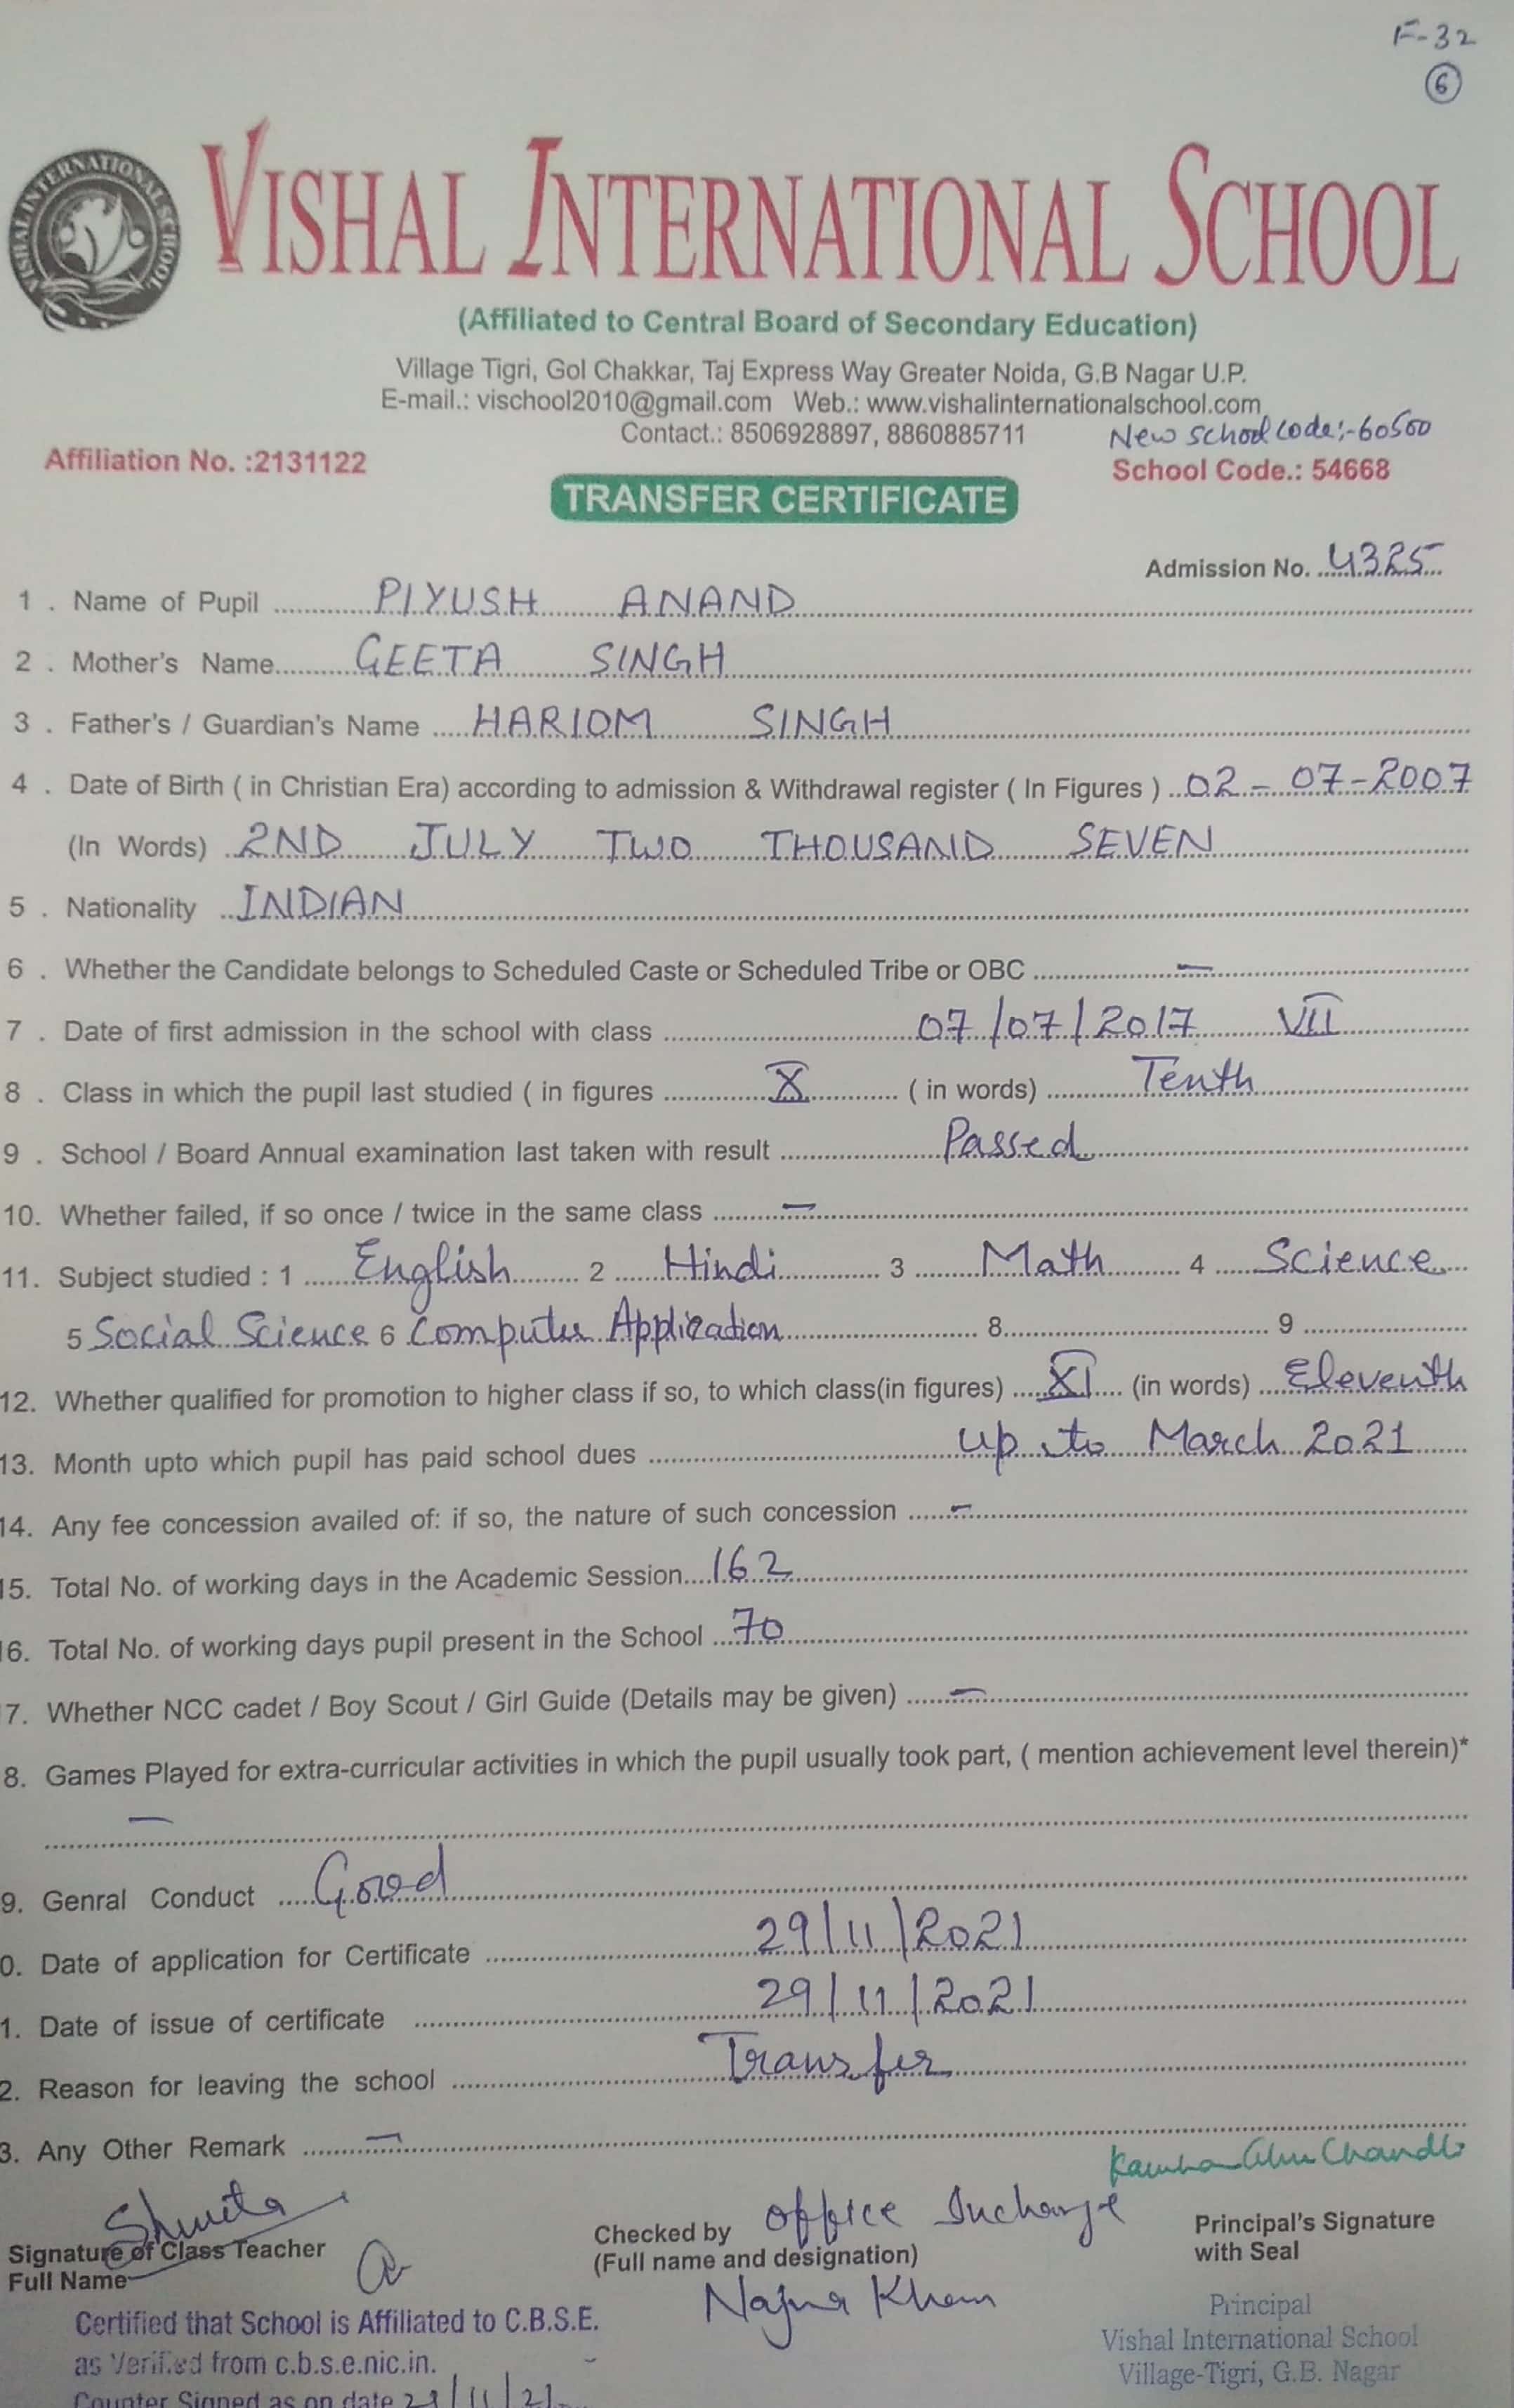 F-32
6
VISHAL INTERNATIONAL SCHOOL
VISHAL INTERNATIONAL SCHOOL
(Affiliated to Central Board of Secondary Education)
Village Tigri, Gol Chakkar, Taj Express Way Greater Noida, G.B Nagar U.P.
E-mail.: vischool2010@gmail.com Web.: www.vishalinternationalschool.com
Contact.: 8506928897, 8860885711
New school code:-60500
Affiliation No. :2131122
School Code.: 54668
TRANSFER CERTIFICATE
Admission No. 4325
1 . Name of Pupil PIYUSH ANAND
2 . Mother's Name GEETA SINGH
3 . Father's / Guardian's Name HARIOM SINGH
4 . Date of Birth ( in Christian Era) according to admission & Withdrawal register ( In Figures ) 02-07-2007
(In Words) 2ND JULY TWO THOUSAND SEVEN
5 . Nationality INDIAN
6 . Whether the Candidate belongs to Scheduled Caste or Scheduled Tribe or OBC —
7 . Date of first admission in the school with class 07/07/2017 VII
8 . Class in which the pupil last studied ( in figures X ( in words) Tenth
9 . School / Board Annual examination last taken with result Passed
10. Whether failed, if so once / twice in the same class —
11. Subject studied : 1 English 2 Hindi 3 Math 4 Science
5 Social Science 6 Computer Application 8 9
12. Whether qualified for promotion to higher class if so, to which class(in figures) XI (in words) Eleventh
13. Month upto which pupil has paid school dues up to March 2021
14. Any fee concession availed of: if so, the nature of such concession -
15. Total No. of working days in the Academic Session 162
6. Total No. of working days pupil present in the School 70
7. Whether NCC cadet / Boy Scout / Girl Guide (Details may be given) —
8. Games Played for extra-curricular activities in which the pupil usually took part, ( mention achievement level therein)*
—
9. Genral Conduct Good
0. Date of application for Certificate 29/11/2021
1. Date of issue of certificate 29/11/2021
2. Reason for leaving the school Transfer
3. Any Other Remark —
Shweta
Signature of Class Teacher
Full Name
Checked by Office Incharge
(Full name and designation)
Najma Khan
Principal's Signature
with Seal
Certified that School is Affiliated to C.B.S.E.
as Verified from c.b.s.e.nic.in.
Counter Signed as on date 29/11/21
Principal
Vishal International School
Village-Tigri, G.B. Nagar